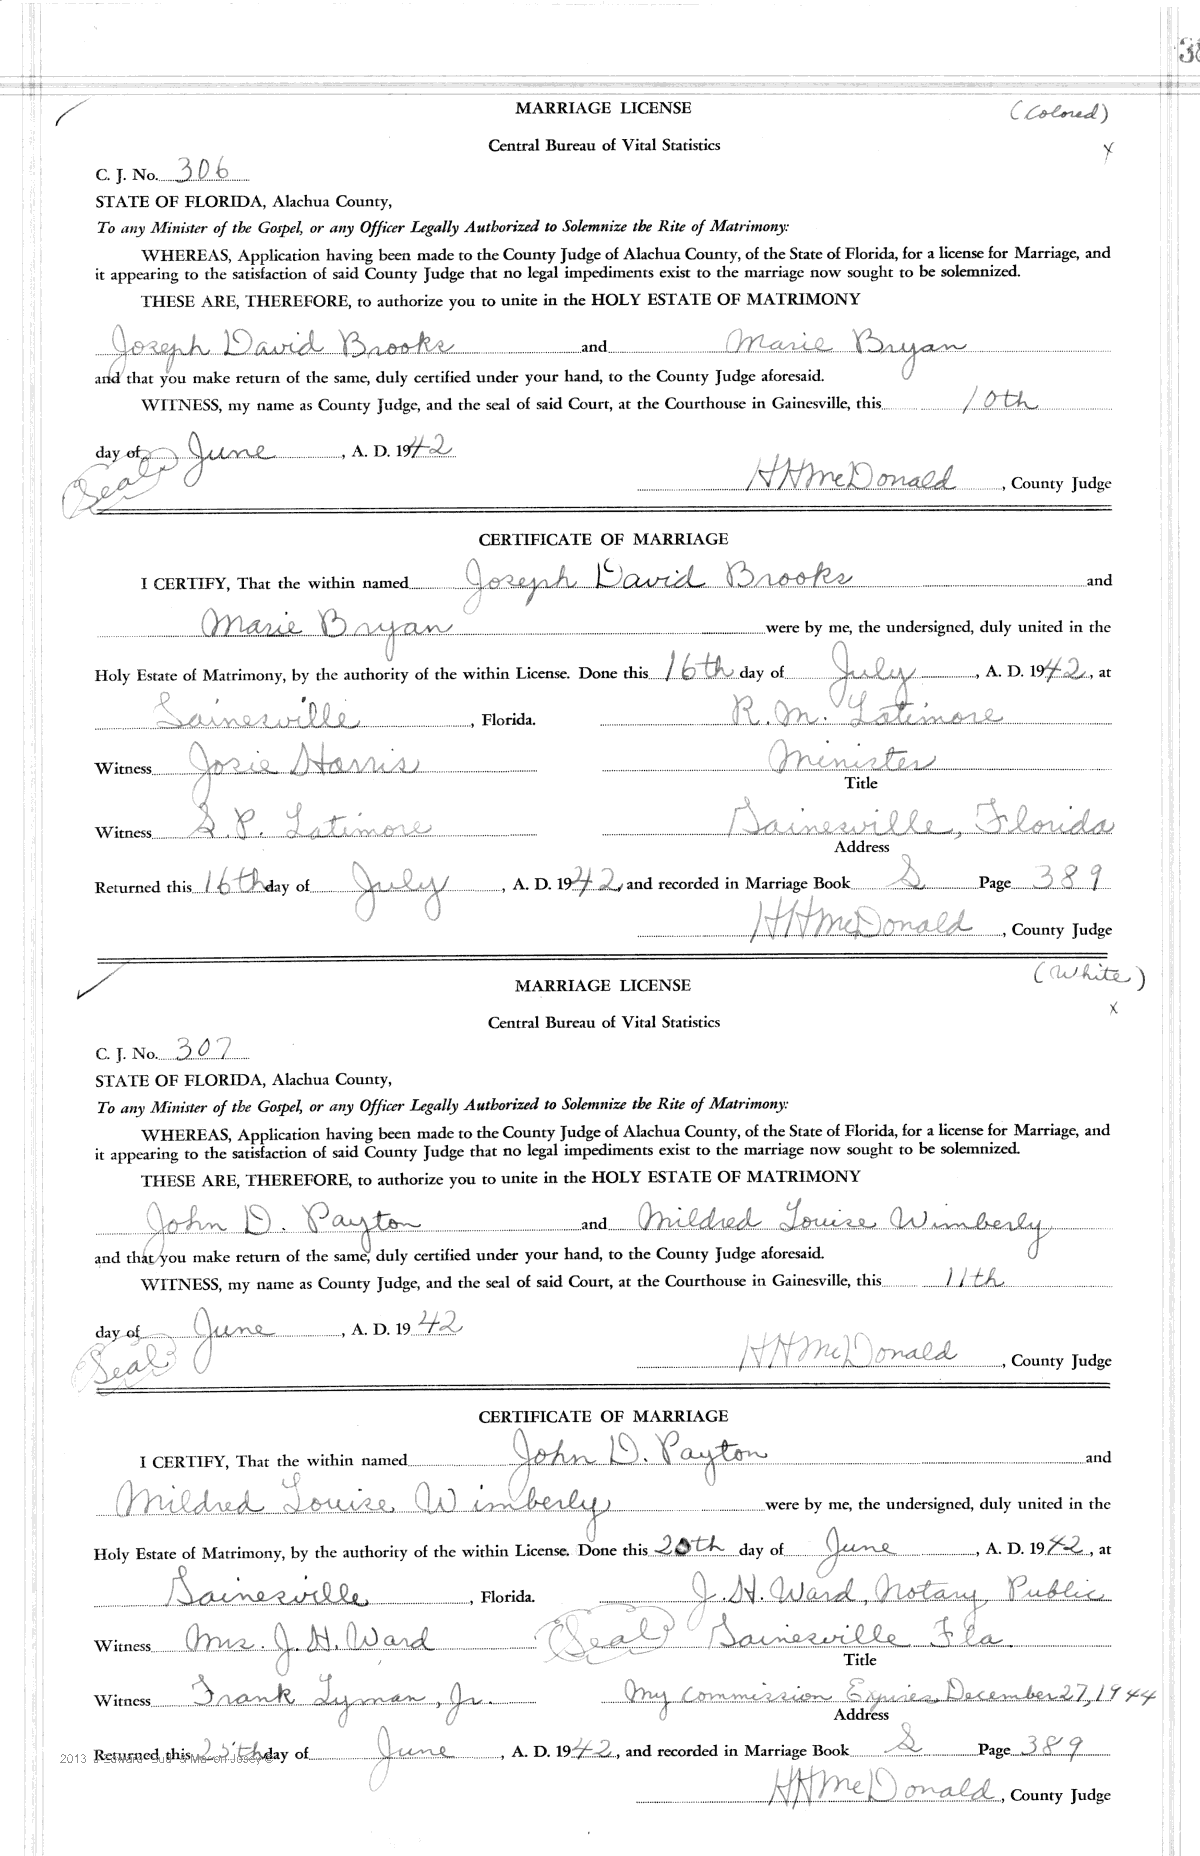 38
MARRIAGE LICENSE
(Colored)
Central Bureau of Vital Statistics
x
C. J. No. 306
STATE OF FLORIDA, Alachua County,
To any Minister of the Gospel, or any Officer Legally Authorized to Solemnize the Rite of Matrimony:
WHEREAS, Application having been made to the County Judge of Alachua County, of the State of Florida, for a license for Marriage, and
it appearing to the satisfaction of said County Judge that no legal impediments exist to the marriage now sought to be solemnized.
THESE ARE, THEREFORE, to authorize you to unite in the HOLY ESTATE OF MATRIMONY
Joseph David Brooks and Marie Bryan
and that you make return of the same, duly certified under your hand, to the County Judge aforesaid.
WITNESS, my name as County Judge, and the seal of said Court, at the Courthouse in Gainesville, this 10th
day of June, A. D. 1942
(Seal)
HHMcDonald, County Judge
CERTIFICATE OF MARRIAGE
I CERTIFY, That the within named Joseph David Brooks and
Marie Bryan were by me, the undersigned, duly united in the
Holy Estate of Matrimony, by the authority of the within License. Done this 16th day of July, A. D. 1942, at
Gainesville, Florida. R. M. Latimore
Witness Josie Harris Minister
Title
Witness S. P. Latimore Gainesville, Florida
Address
Returned this 16th day of July, A. D. 1942, and recorded in Marriage Book S Page 389
HHMcDonald, County Judge
(White)
MARRIAGE LICENSE
x
Central Bureau of Vital Statistics
C. J. No. 307
STATE OF FLORIDA, Alachua County,
To any Minister of the Gospel, or any Officer Legally Authorized to Solemnize the Rite of Matrimony:
WHEREAS, Application having been made to the County Judge of Alachua County, of the State of Florida, for a license for Marriage, and
it appearing to the satisfaction of said County Judge that no legal impediments exist to the marriage now sought to be solemnized.
THESE ARE, THEREFORE, to authorize you to unite in the HOLY ESTATE OF MATRIMONY
John D. Payton and Mildred Louise Wimberly
and that you make return of the same, duly certified under your hand, to the County Judge aforesaid.
WITNESS, my name as County Judge, and the seal of said Court, at the Courthouse in Gainesville, this 11th
day of June, A. D. 1942
(Seal)
HHMcDonald, County Judge
CERTIFICATE OF MARRIAGE
I CERTIFY, That the within named John D. Payton and
Mildred Louise Wimberly were by me, the undersigned, duly united in the
Holy Estate of Matrimony, by the authority of the within License. Done this 20th day of June, A. D. 1942, at
Gainesville, Florida. J. H. Ward, Notary Public
Witness Mrs. J. H. Ward (Seal) Gainesville Fla.
Title
Witness Frank Lyman, Jr. My commission Expires December 27, 1944
Address
Returned this 25th day of June, A. D. 1942, and recorded in Marriage Book S Page 389
2013
HHMcDonald, County Judge